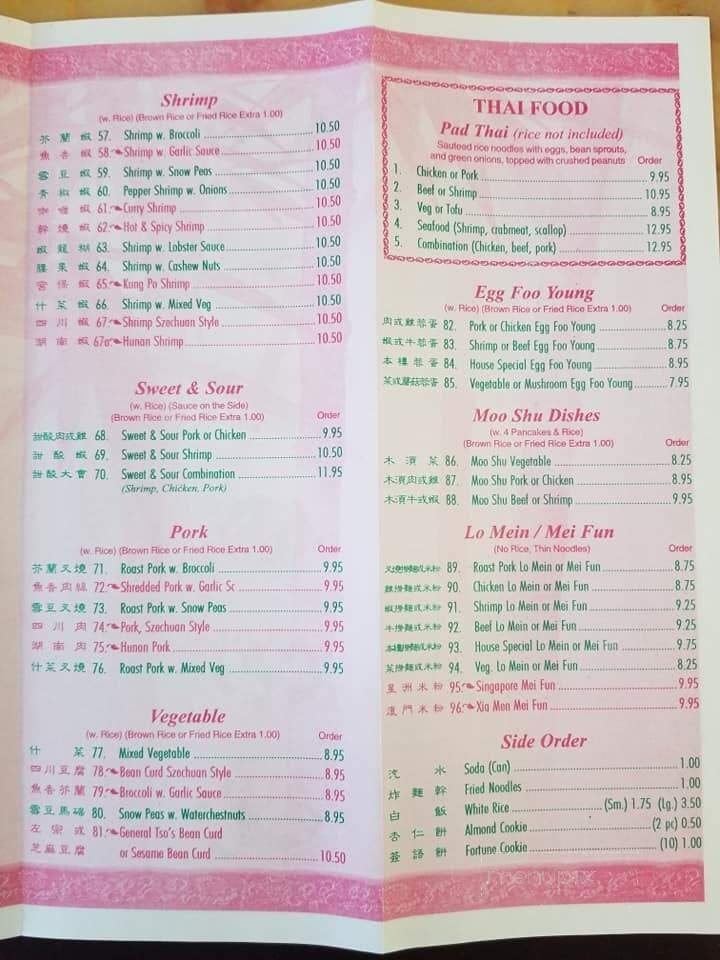 Shrimp
(w. Rice) (Brown Rice or Fried Rice Extra 1.00)
芥蘭蝦 57. Shrimp w. Broccoli 10.50
魚香蝦 58. Shrimp w. Garlic Sauce 10.50
雪豆蝦 59. Shrimp w. Snow Peas 10.50
青椒蝦 60. Pepper Shrimp w. Onions 10.50
咖喱蝦 61. Curry Shrimp 10.50
幹燒蝦 62. Hot & Spicy Shrimp 10.50
蝦龍糊 63. Shrimp w. Lobster Sauce 10.50
腰果蝦 64. Shrimp w. Cashew Nuts 10.50
宮保蝦 65. Kung Po Shrimp 10.50
什菜蝦 66. Shrimp w. Mixed Veg 10.50
四川蝦 67. Shrimp Szechuan Style 10.50
湖南蝦 67a. Hunan Shrimp 10.50
Sweet & Sour
(w. Rice) (Sauce on the Side)
(Brown Rice or Fried Rice Extra 1.00) Order
甜酸肉或雞 68. Sweet & Sour Pork or Chicken 9.95
甜酸蝦 69. Sweet & Sour Shrimp 10.50
甜酸大會 70. Sweet & Sour Combination 11.95
(Shrimp, Chicken, Pork)
Pork
(w. Rice) (Brown Rice or Fried Rice Extra 1.00) Order
芥蘭叉燒 71. Roast Pork w. Broccoli 9.95
魚香肉絲 72. Shredded Pork w. Garlic Sc 9.95
雪豆叉燒 73. Roast Pork w. Snow Peas 9.95
四川肉 74. Pork, Szechuan Style 9.95
湖南肉 75. Hunan Pork 9.95
什菜叉燒 76. Roast Pork w. Mixed Veg 9.95
Vegetable
(w. Rice) (Brown Rice or Fried Rice Extra 1.00) Order
什菜 77. Mixed Vegetable 8.95
四川豆腐 78. Bean Curd Szechuan Style 8.95
魚香芥蘭 79. Broccoli w. Garlic Sauce 8.95
雪豆馬蹄 80. Snow Peas w. Waterchestnuts 8.95
左宗或 81. General Tso's Bean Curd
芝麻豆腐 or Sesame Bean Curd 10.50
THAI FOOD
Pad Thai (rice not included)
Sauteed rice noodles with eggs, bean sprouts,
and green onions, topped with crushed peanuts Order
1. Chicken or Pork 9.95
2. Beef or Shrimp 10.95
3. Veg or Tofu 8.95
4. Seafood (Shrimp, crabmeat, scallop) 12.95
5. Combination (Chicken, beef, pork) 12.95
Egg Foo Young
(w. Rice) (Brown Rice or Fried Rice Extra 1.00) Order
肉或雞蓉蛋 82. Pork or Chicken Egg Foo Young 8.25
蝦或牛蓉蛋 83. Shrimp or Beef Egg Foo Young 8.75
本樓蓉蛋 84. House Special Egg Foo Young 8.95
菜或蘑菇蓉蛋 85. Vegetable or Mushroom Egg Foo Young 7.95
Moo Shu Dishes
(w. 4 Pancakes & Rice)
(Brown Rice or Fried Rice Extra 1.00) Order
木須菜 86. Moo Shu Vegetable 8.25
木須肉或雞 87. Moo Shu Pork or Chicken 8.95
木須牛或蝦 88. Moo Shu Beef or Shrimp 9.95
Lo Mein / Mei Fun
(No Rice, Thin Noodles) Order
叉燒撈麵或米粉 89. Roast Pork Lo Mein or Mei Fun 8.75
雞撈麵或米粉 90. Chicken Lo Mein or Mei Fun 8.75
蝦撈麵或米粉 91. Shrimp Lo Mein or Mei Fun 9.25
牛撈麵或米粉 92. Beef Lo Mein or Mei Fun 9.25
本樓撈麵或米粉 93. House Special Lo Mein or Mei Fun 9.75
菜撈麵或米粉 94. Veg. Lo Mein or Mei Fun 8.25
星洲米粉 95. Singapore Mei Fun 9.95
廈門米粉 96. Xia Men Mei Fun 9.95
Side Order
汽水 Soda (Can) 1.00
炸麵幹 Fried Noodles 1.00
白飯 White Rice (Sm.) 1.75 (Lg.) 3.50
杏仁餅 Almond Cookie (2 pc) 0.50
簽語餅 Fortune Cookie (10) 1.00
menupix